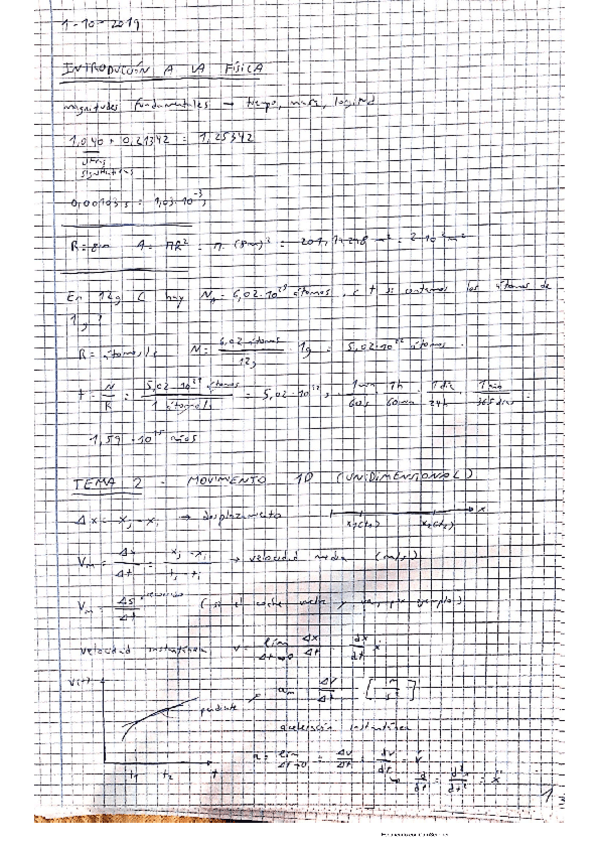 1-10-2019
INTRODUCCIÓN A LA FÍSICA
magnitudes fundamentales → tiempo, masa, longitud
1,040 + 0,21342 = 1,25342
cifras
significativas
0,00103 = 1,03·10⁻³
R=8m A= πR² = π·(8m)² = = 2·10² m²
En 12g C hay N_A = 6,02·10²³ átomos, t si contamos los átomos de
1g?
R= átomo/s N= 6,02 átomos / 12g · 1g = 5,02·10²² átomos.
t = N/R = 5,02·10²² átomos / 1 átomo/s = 5,02·10²² s · 1min/60s · 1h/60min · 1día/24h · 1año/365días =
1,59·10¹⁵ años
TEMA 2 - MOVIMIENTO 1D (UNIDIMENSIONAL)
Δx = x_f - x_i → desplazamiento x₁(t₁) x₂(t₂) x
V_m = Δx/Δt = x_f - x_i / t_f - t_i → velocidad media (m/s)
V_m = Δs/Δt (si el coche vuelve y va, por ejemplo)
velocidad instantánea v = lím Δt→0 Δx/Δt = dx/dt = ẋ
v(t) pendiente → a_m = Δv/Δt = [m/s²]
aceleración instantánea
t₁ t₂ t a = lím Δt→0 = Δv/Δt = dv/dt = v̇
d/dt = d²x/dt² = ẍ
1